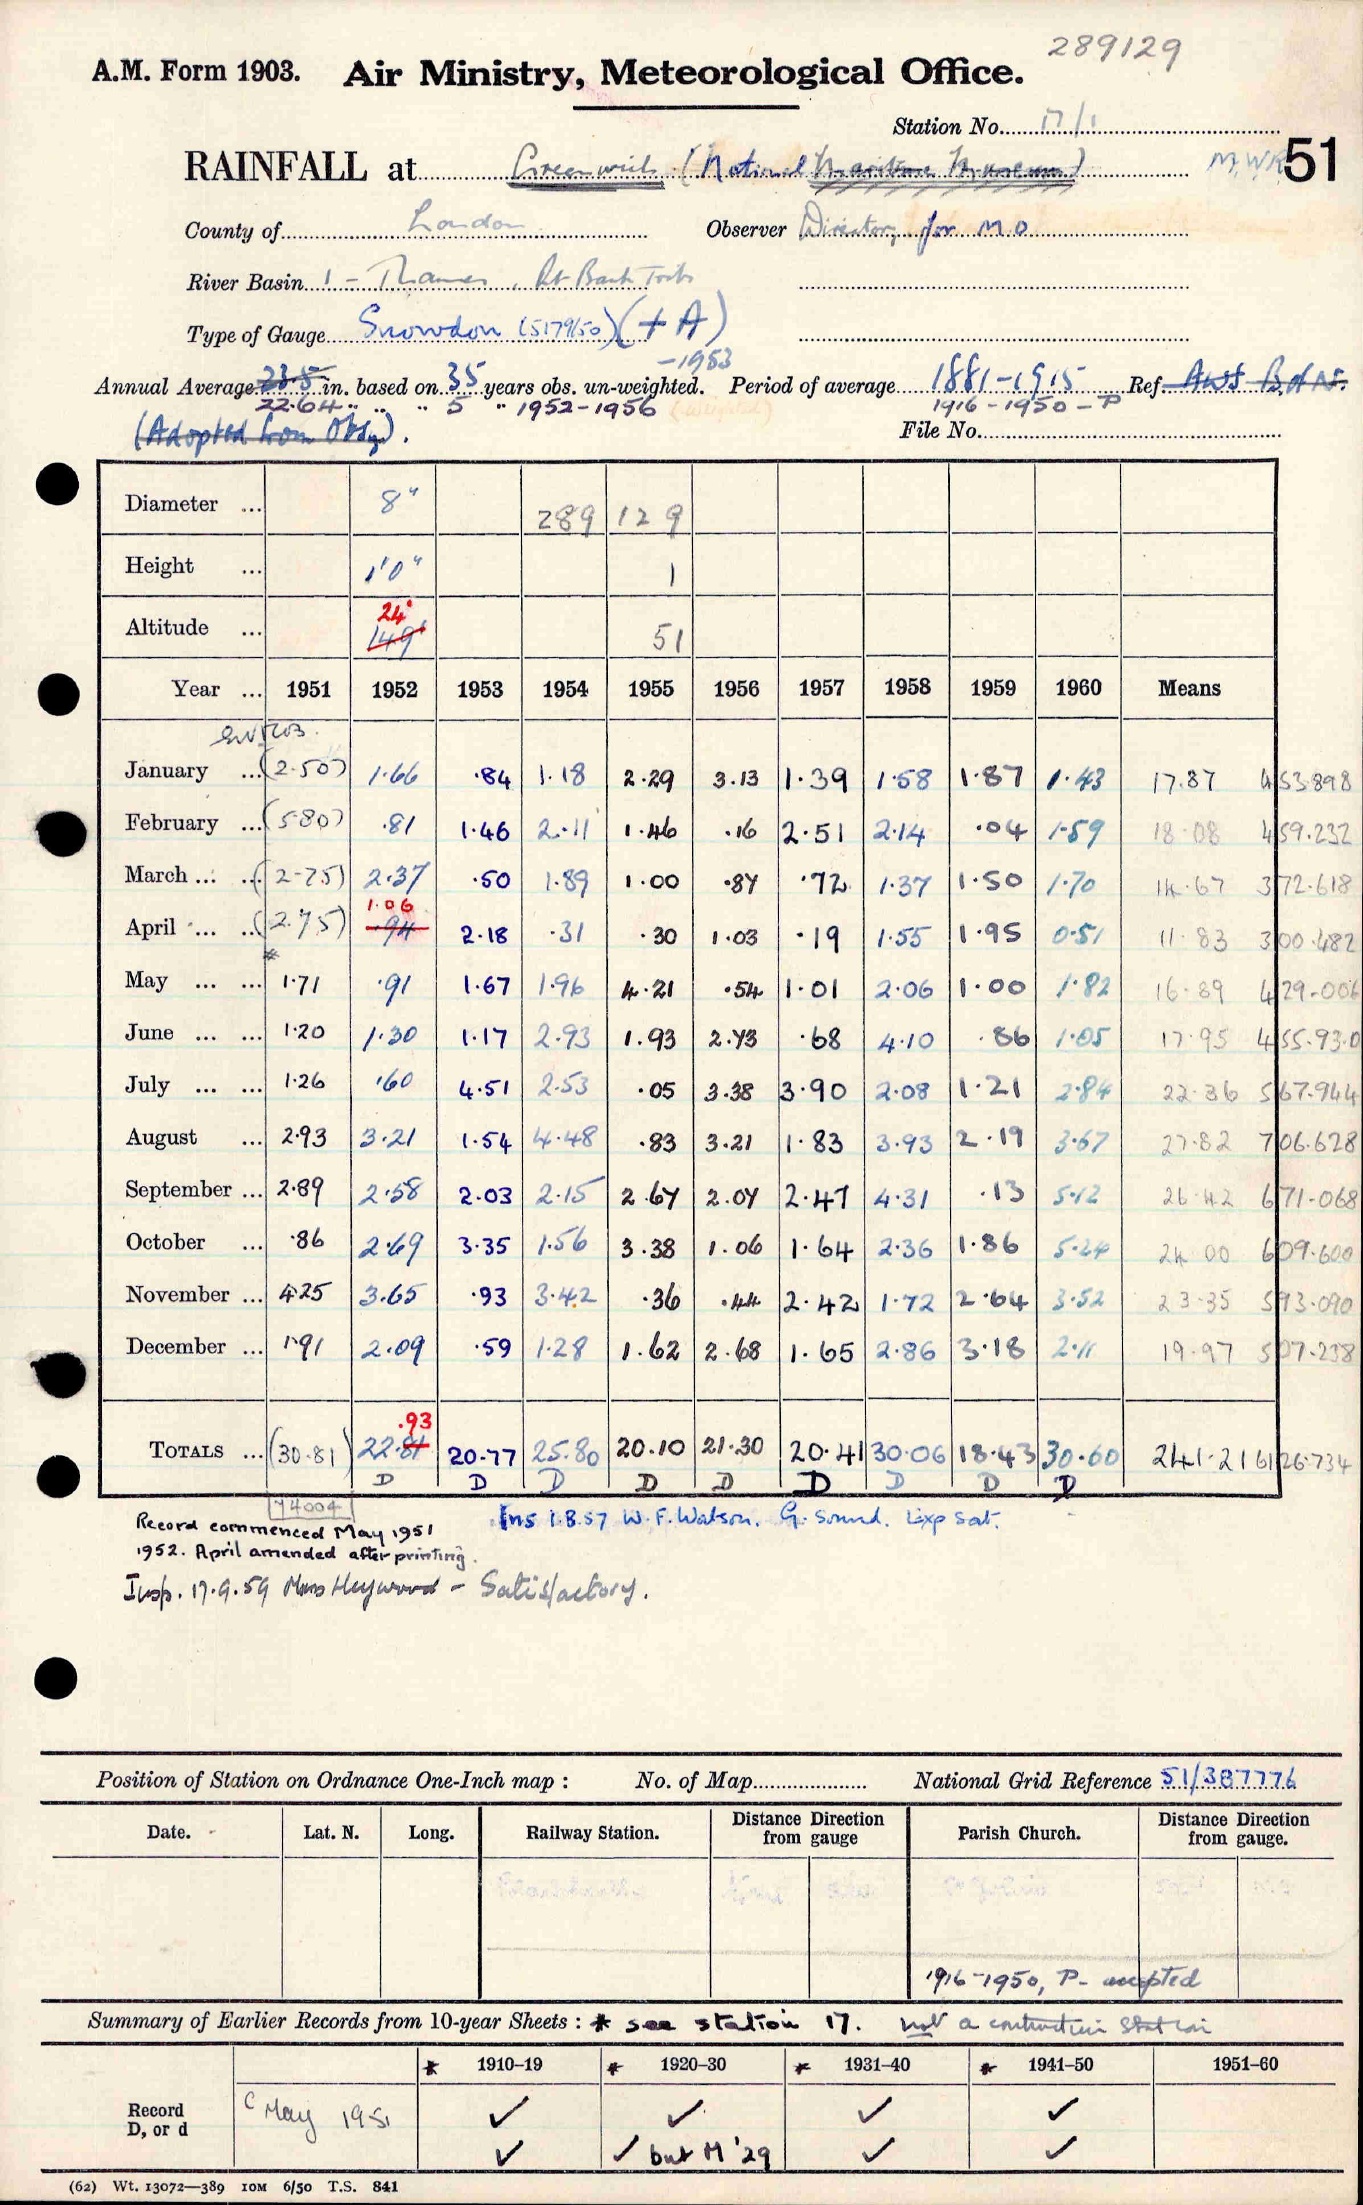 289129
A.M. Form 1903. Air Ministry, Meteorological Office.
Station No. 17/1
RAINFALL at Greenwich (National Maritime Museum) M.W.R. 51
County of London Observer Director, for M O
River Basin 1 - Thames, Rt Bank Tribs
Type of Gauge Snowdon (5179/50) (+A)
-1953
Annual Average 23.5 in. based on 35 years obs. un-weighted. Period of average 1881-1915 Ref.
22.64 " " " 5 " 1952-1956 (Weighted) 1916-1950-P
(Adopted from Obsy). File No.
Diameter ... 8" 289 12 9
Height ... 1'0" 1
Altitude ... 24' 149' 51
Year ... 1951 1952 1953 1954 1955 1956 1957 1958 1959 1960 Means
January ... (2.50) 1.66 .84 1.18 2.29 3.13 1.39 1.58 1.87 1.43 17.87 453.898
February ... (5.80) .81 1.46 2.11 1.46 .16 2.51 2.14 .04 1.59 18.08 459.232
March ... ... (2.75) 2.37 .50 1.89 1.00 .87 .72 1.37 1.50 1.70 14.67 372.618
1.06
April ... ... (2.75) .94 2.18 .31 .30 1.03 .19 1.55 1.95 0.51 11.83 300.482
*
May ... ... 1.71 .91 1.67 1.96 4.21 .54 1.01 2.06 1.00 1.82 16.89 429.006
June ... ... 1.20 1.30 1.17 2.93 1.93 2.73 .68 4.10 .86 1.05 17.95 455.930
July ... ... 1.26 .60 4.51 2.53 .05 3.38 3.90 2.08 1.21 2.84 22.36 567.944
August ... 2.93 3.21 1.54 4.48 .83 3.21 1.83 3.93 2.19 3.67 27.82 706.628
September ... 2.89 2.58 2.03 2.15 2.67 2.07 2.47 4.31 .13 5.12 26.42 671.068
October ... .86 2.69 3.35 1.56 3.38 1.06 1.64 2.36 1.86 5.24 24.00 609.600
November ... 4.25 3.65 .93 3.42 .36 .44 2.42 1.72 2.64 3.52 23.35 593.090
December ... 1.91 2.09 .59 1.28 1.62 2.68 1.65 2.86 3.18 2.11 19.97 507.238
.93
TOTALS ... (30.81) 22.81 20.77 25.80 20.10 21.30 20.41 30.06 18.43 30.60 241.21 6126.734
D D D D D D D D D
74004
Record commenced May 1951 Ins 1.8.57 W.F. Watson. G. Sound. Exp Sat.
1952. April amended after printing.
Insp. 17.9.59 Miss Heywood - Satisfactory.
Position of Station on Ordnance One-Inch map : No. of Map National Grid Reference 51/387776
Date. Lat. N. Long. Railway Station. Distance Direction from gauge Parish Church. Distance Direction from gauge.
1916-1950, P- accepted
Summary of Earlier Records from 10-year Sheets : * see station 17. not a contribution station
* 1910–19 * 1920–30 * 1931–40 * 1941–50 1951–60
Record C May 1951 ✓ ✓ ✓ ✓
D, or d ✓ ✓ but M '29 ✓ ✓
(62) Wt. 13072—389 10M 6/50 T.S. 841